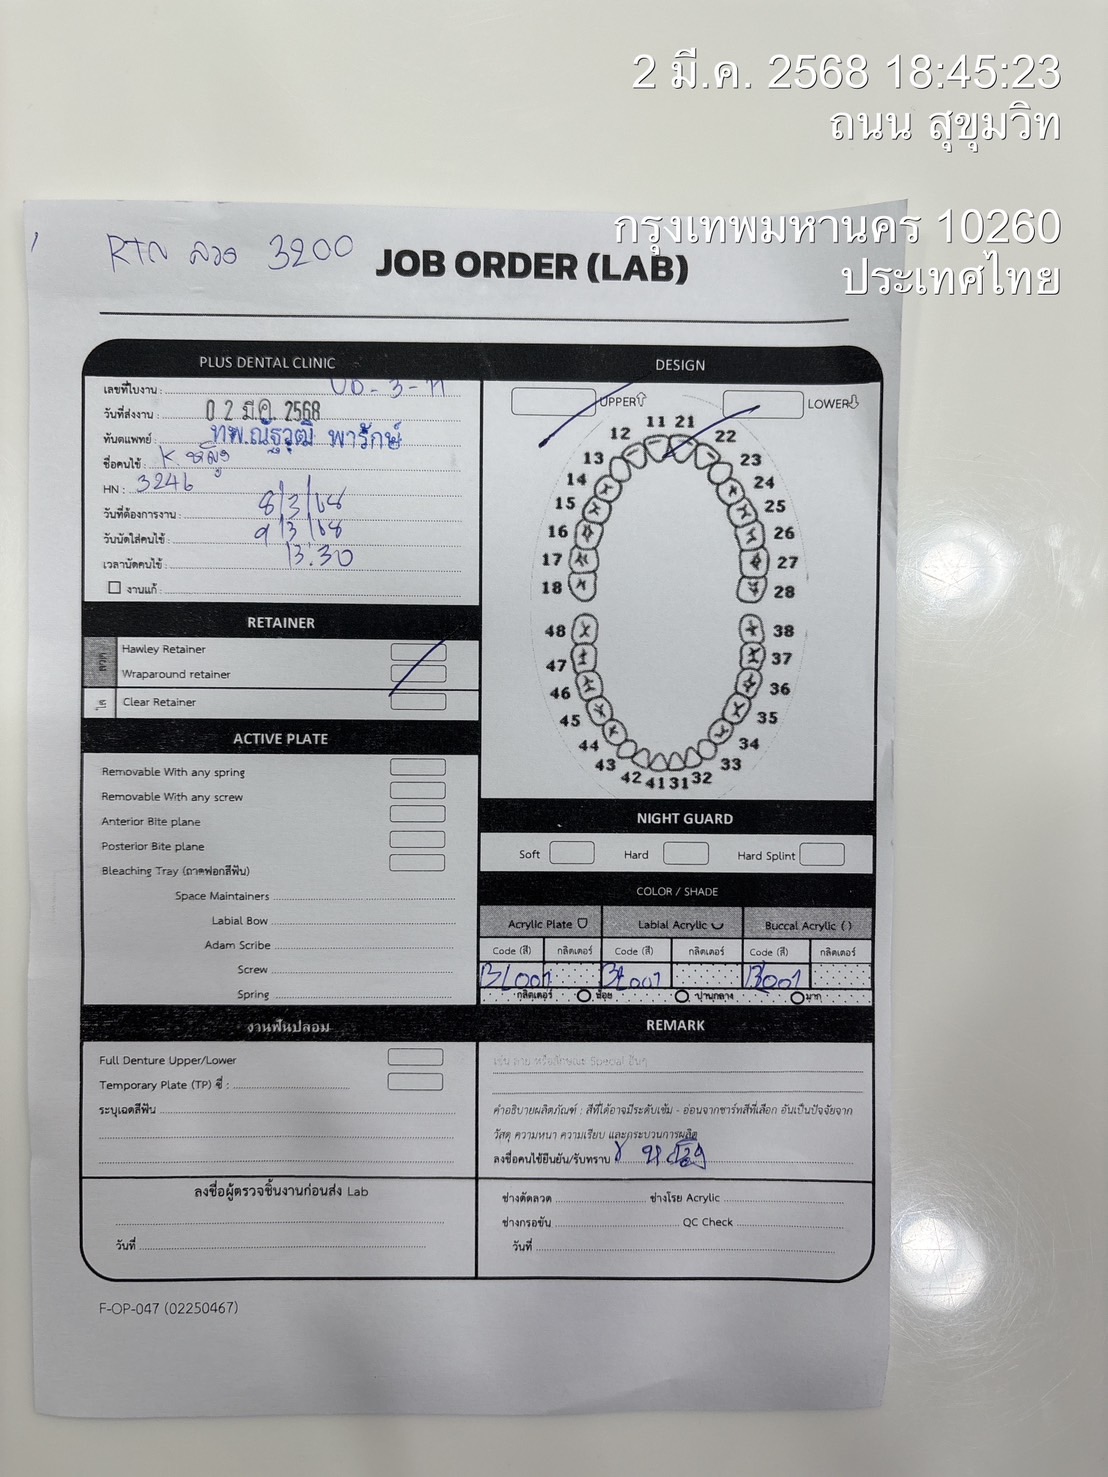 2 มี.ค. 2568 18:45:23
ถนน สุขุมวิท
กรุงเทพมหานคร 10260
ประเทศไทย
RTN ลวด 3200
JOB ORDER (LAB)
PLUS DENTAL CLINIC
เลขที่ใบงาน :
วันที่ส่งงาน : 0 2 มี.ค. 2568
ทันตแพทย์ : ทพ.ณัฐวุฒิ พารักษ์
ชื่อคนไข้ : K.
HN : 3246
วันที่ต้องการงาน : 8/3/68
วันนัดใส่คนไข้ : 9/3/68
เวลานัดคนไข้ : 13.30
งานแก้ :
RETAINER
ลวด
Hawley Retainer
Wraparound retainer
ใส
Clear Retainer
ACTIVE PLATE
Removable With any spring
Removable With any screw
Anterior Bite plane
Posterior Bite plane
Bleaching Tray (ถาดฟอกสีฟัน)
Space Maintainers
Labial Bow
Adam Scribe
Screw
Spring
งานฟันปลอม
Full Denture Upper/Lower
Temporary Plate (TP) ซี่ :
ระบุเฉดสีฟัน
ลงชื่อผู้ตรวจชิ้นงานก่อนส่ง Lab
วันที่
DESIGN
UPPER⇧ LOWER⇩
11 21
12 22
13 23
14 24
15 25
16 26
17 27
18 28
48 38
47 37
46 36
45 35
44 34
43 33
42 41 31 32
NIGHT GUARD
Soft Hard Hard Splint
COLOR / SHADE
Acrylic Plate Labial Acrylic Buccal Acrylic ( )
Code (สี) กลิตเตอร์ Code (สี) กลิตเตอร์ Code (สี) กลิตเตอร์
BL001 BL001 BL001
กลิตเตอร์ น้อย ปานกลาง มาก
REMARK
เช่น ลาย หรือลักษณะ Special อื่นๆ
คำอธิบายผลิตภัณฑ์ : สีที่ได้อาจมีระดับเข้ม - อ่อนจากชาร์ทสีที่เลือก อันเป็นปัจจัยจาก
วัสดุ ความหนา ความเรียบ และกระบวนการผลิต
ลงชื่อคนไข้ยืนยัน/รับทราบ
ช่างดัดลวด ช่างโรย Acrylic
ช่างกรอขัน QC Check
วันที่
F-OP-047 (02250467)